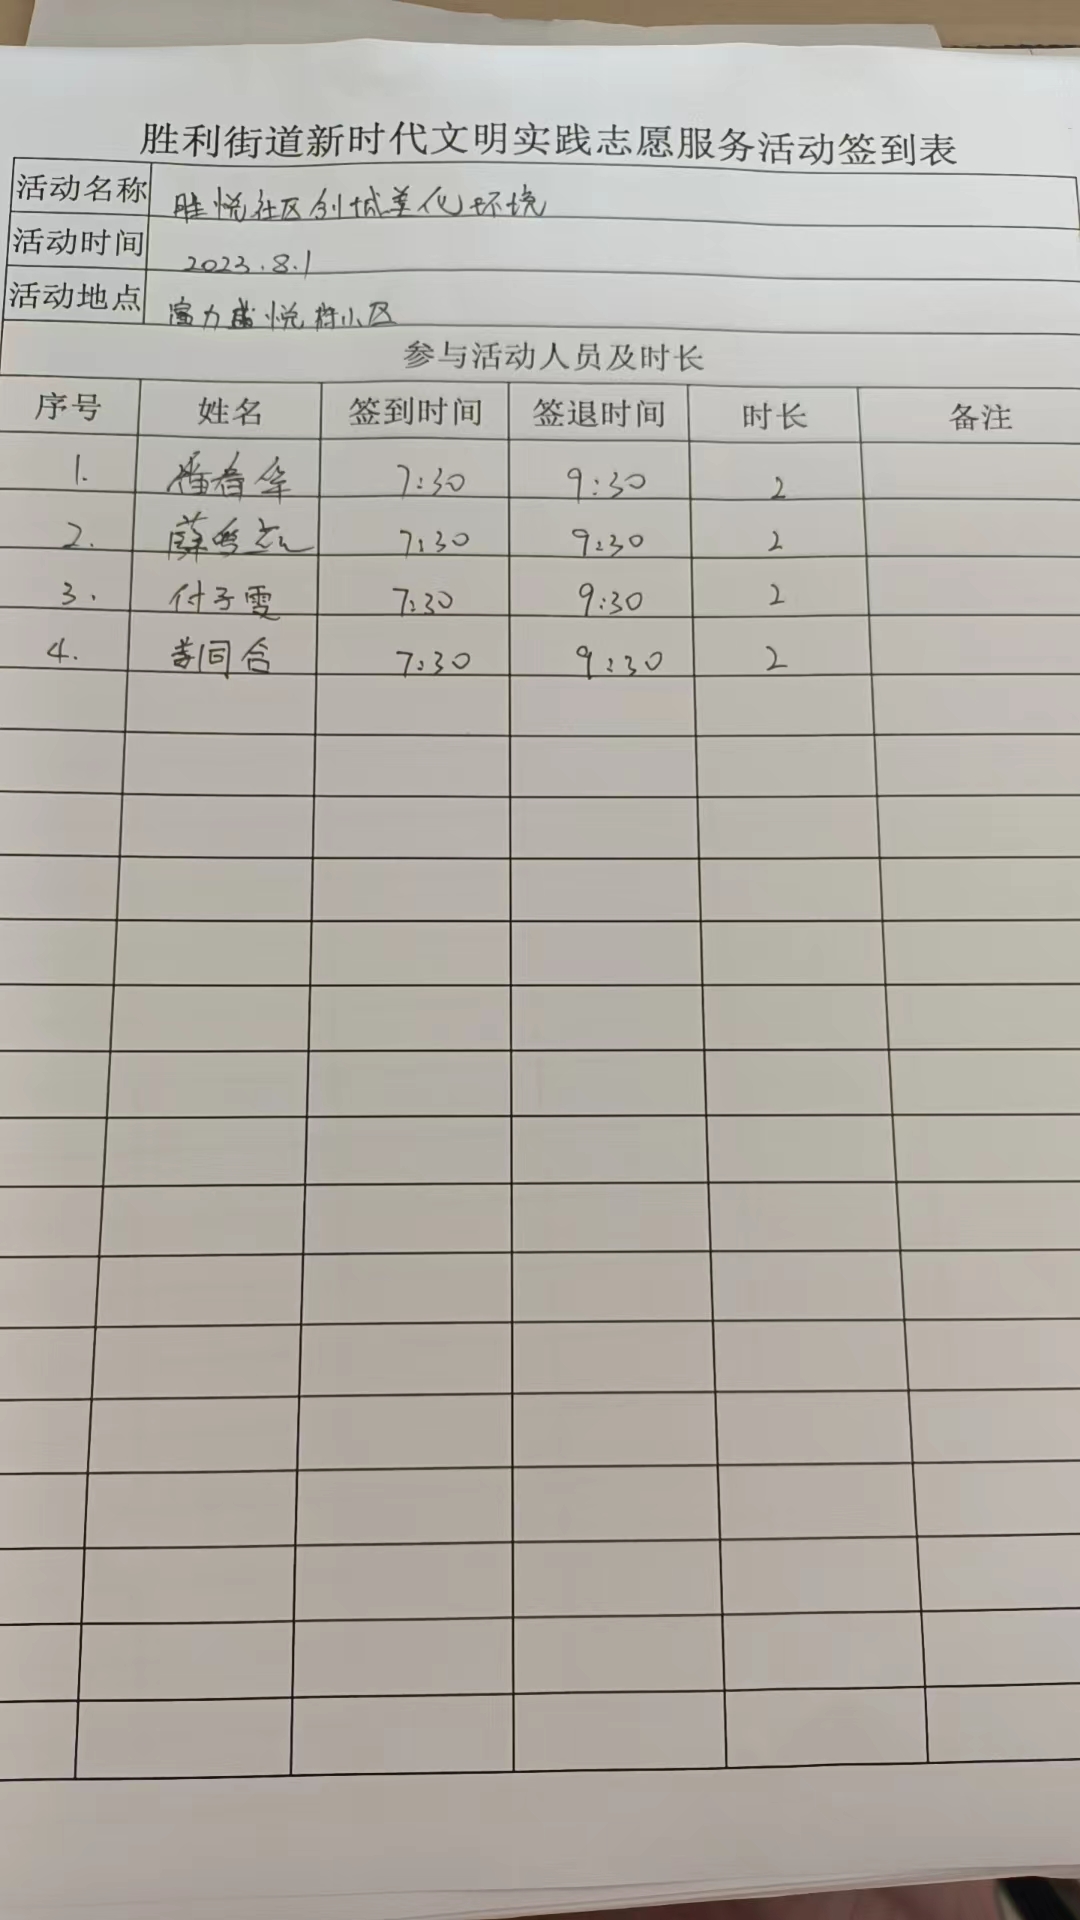 胜利街道新时代文明实践志愿服务活动签到表
活动名称 胜悦社区创城美化环境
活动时间 2023.8.1
活动地点 富力盛悦府小区
参与活动人员及时长
序号 姓名 签到时间 签退时间 时长 备注
1. 春华 7:30 9:30 2
2. 薛 7:30 9:30 2
3. 付子雯 7:30 9:30 2
4. 同合 7:30 9:30 2